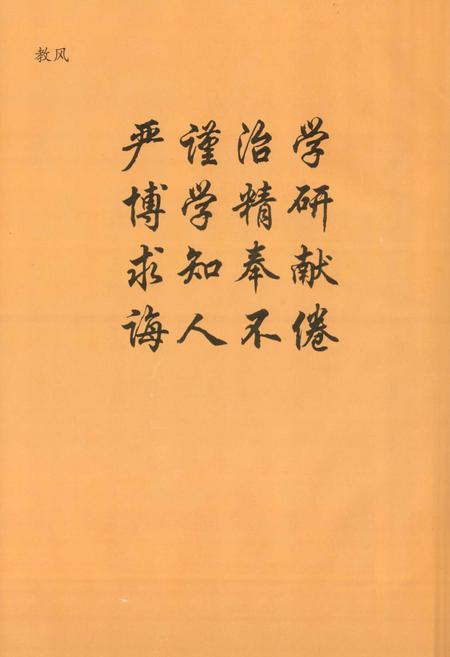 教风
严谨治学
博学精研
求知奉献
诲人不倦